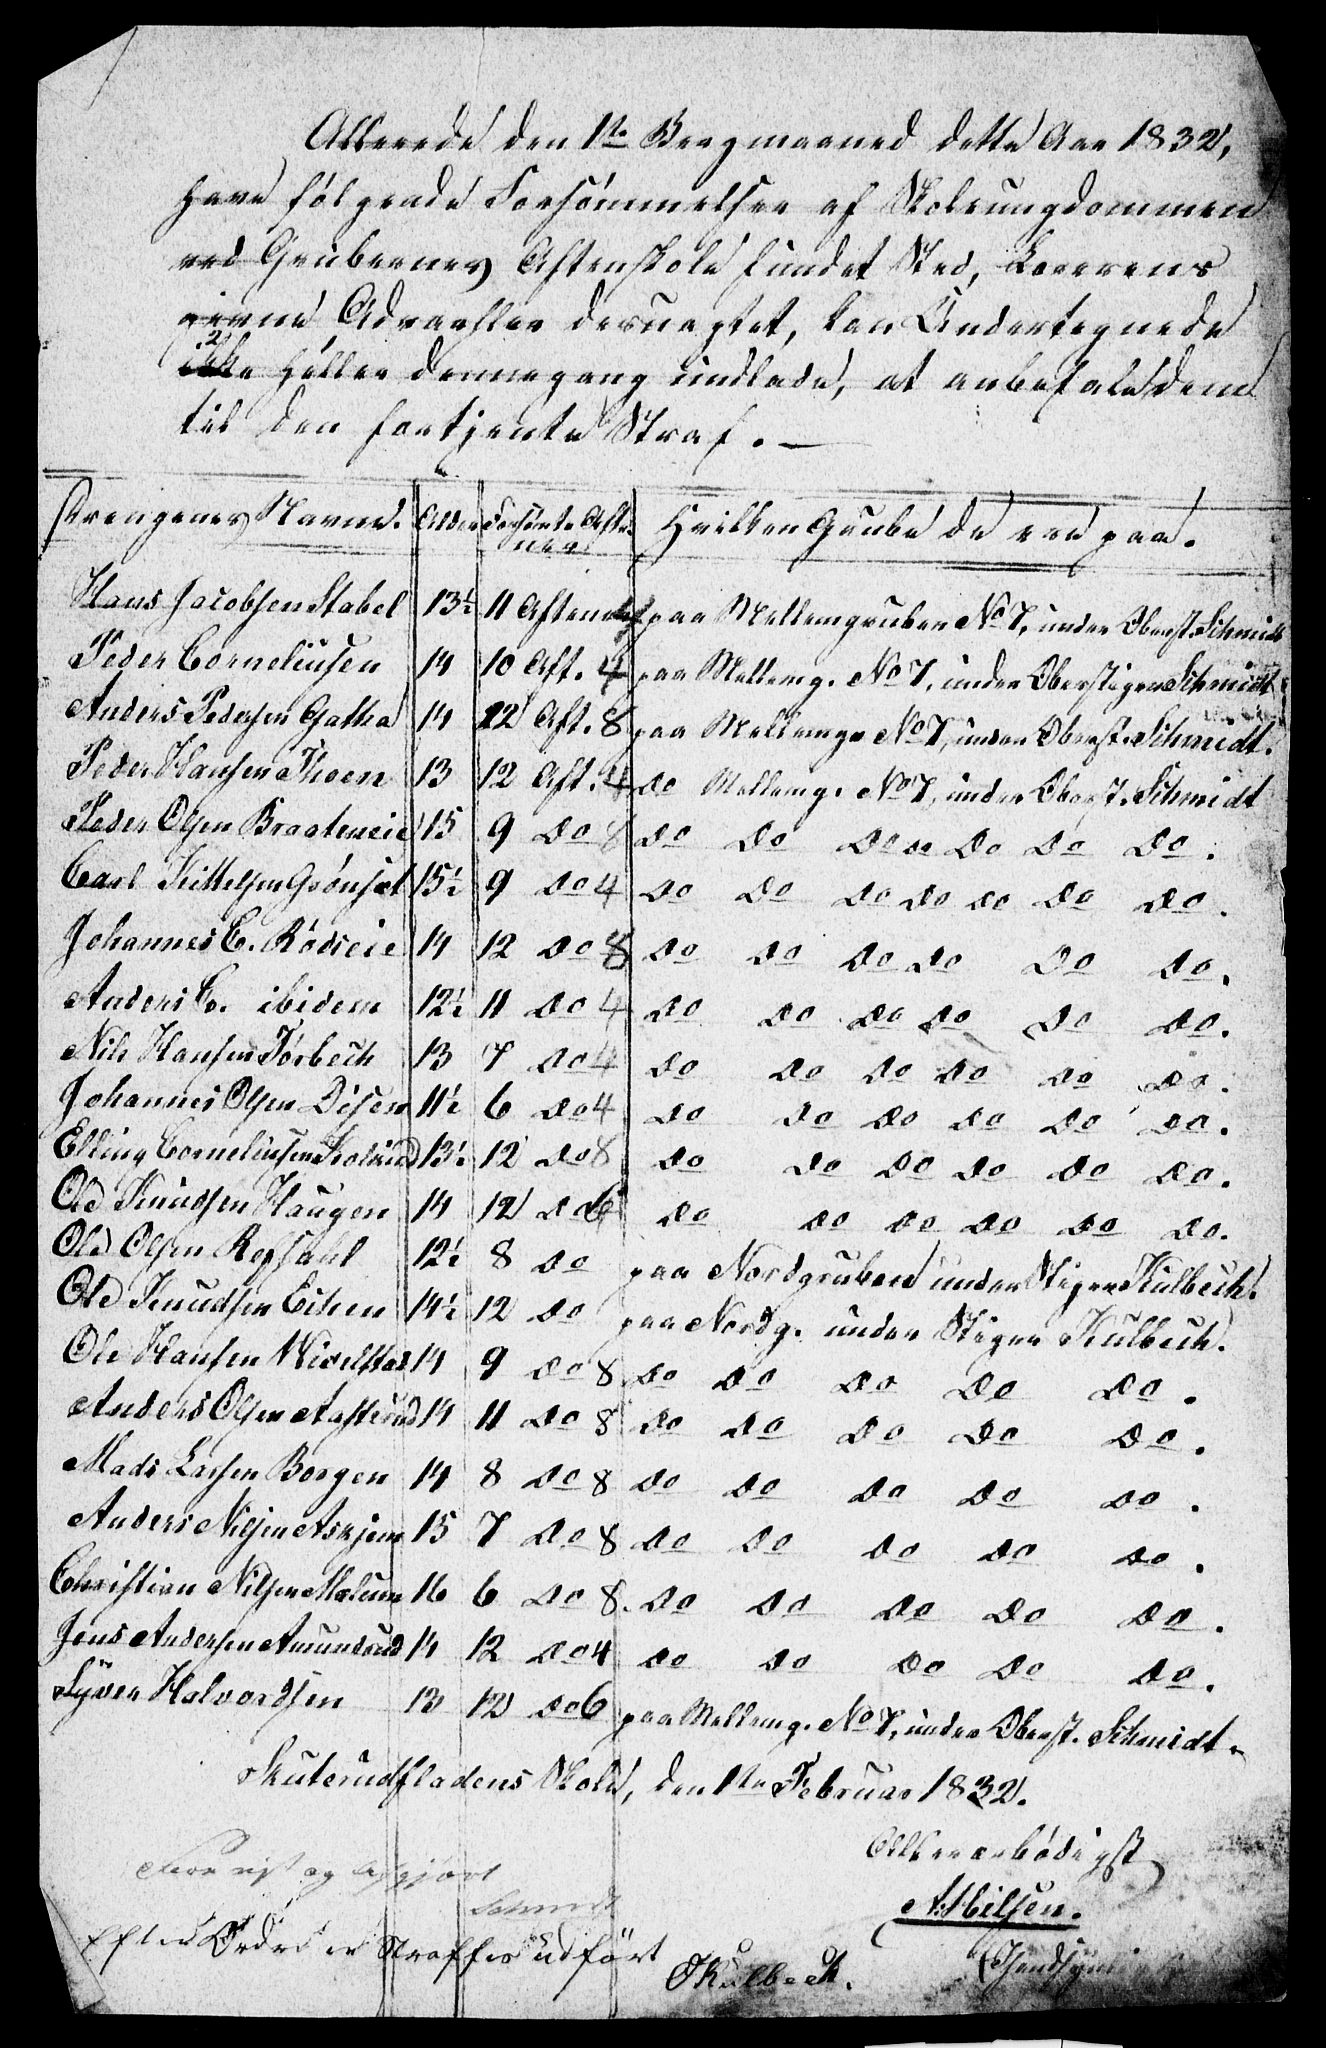 Allerede den 1te Bergmaaned dette Aar 1832,
have følgende Forsømmelser af Skoleungdommen
ved Grubernes Aftenskole fundet Sted, Lærerens
Advarsler desuagtet, kan Undertegnede
ikke heller dennegang undlade, at anbefale dem
til den fortjente Straf. —
Drengenes Navne. Alder Forsømte Afte-ner. Hvilken Grube de ere paa.
Hans Jacobsen Stabel 13½ 11 Aftener paa Mellemgruben No 7, under Oberst. Schmidt
Peder Corneliusen 14 10 Aft. 4 paa Mellemg. No 7, under Oberstiger Schmidt
Anders Pedersen Gatha 14 12 Aft. 8 paa Mellemgr No 7, under Oberst. Schmidt.
Peder Hansen Thoen 13 12 Aft. 4 do Mellemg. No 7, under Oberst. Schmidt
Peder Olsen Braateneie 15 9 do 8 do do do do do do do.
Carl Kittelsen Grønset 15½ 9 do 4 do do do do do do do.
Johannes C. Rødseie 14 12 do 8 do do do do do do.
Anders C. ibidem 12½ 11 do 4 do do do do do do.
Nils Hansen Tørbech 13 7 do 4 do do do do do do.
Johannes Olsen Disen 11½ 6 do 4 do do do do do do.
Elling Corneliusen 13½ 12 do 8 do do do do do do.
Ole Knudsen Haugen 14 12 do 6 do do do do do do.
Ole Olsen Refsahl 12½ 8 do paa Nordgruben under Stiger Kulbech.
Ole Knudsen Eken 14½ 12 do paa Nordg. under Stiger Kulbech.
Ole Hansen 14 9 do 8 do do do do do.
Anders Olsen Aasterud 14 11 do 8 do do do do do.
Mads Larsen Borgen 14 8 do 8 do do do do do.
Anders Nilsen Askjem 15 7 do 8 do do do do do.
Christian Nilsen Moeum 16 6 do 8. do do do do do.
Jens Andersen Amundrud 14 12 do 4 do do do do do.
Syver Halvordsen 13 12 do 6 paa Mellemg. No 7, under Oberst. Schmidt.
Skuterudfladens Skole, den 1te Februar 1832.
Allerærbødigst
A. Nilsen.
og afgjort
Schmidt
Efter Ordre er Straffen udført
OKulbeck.